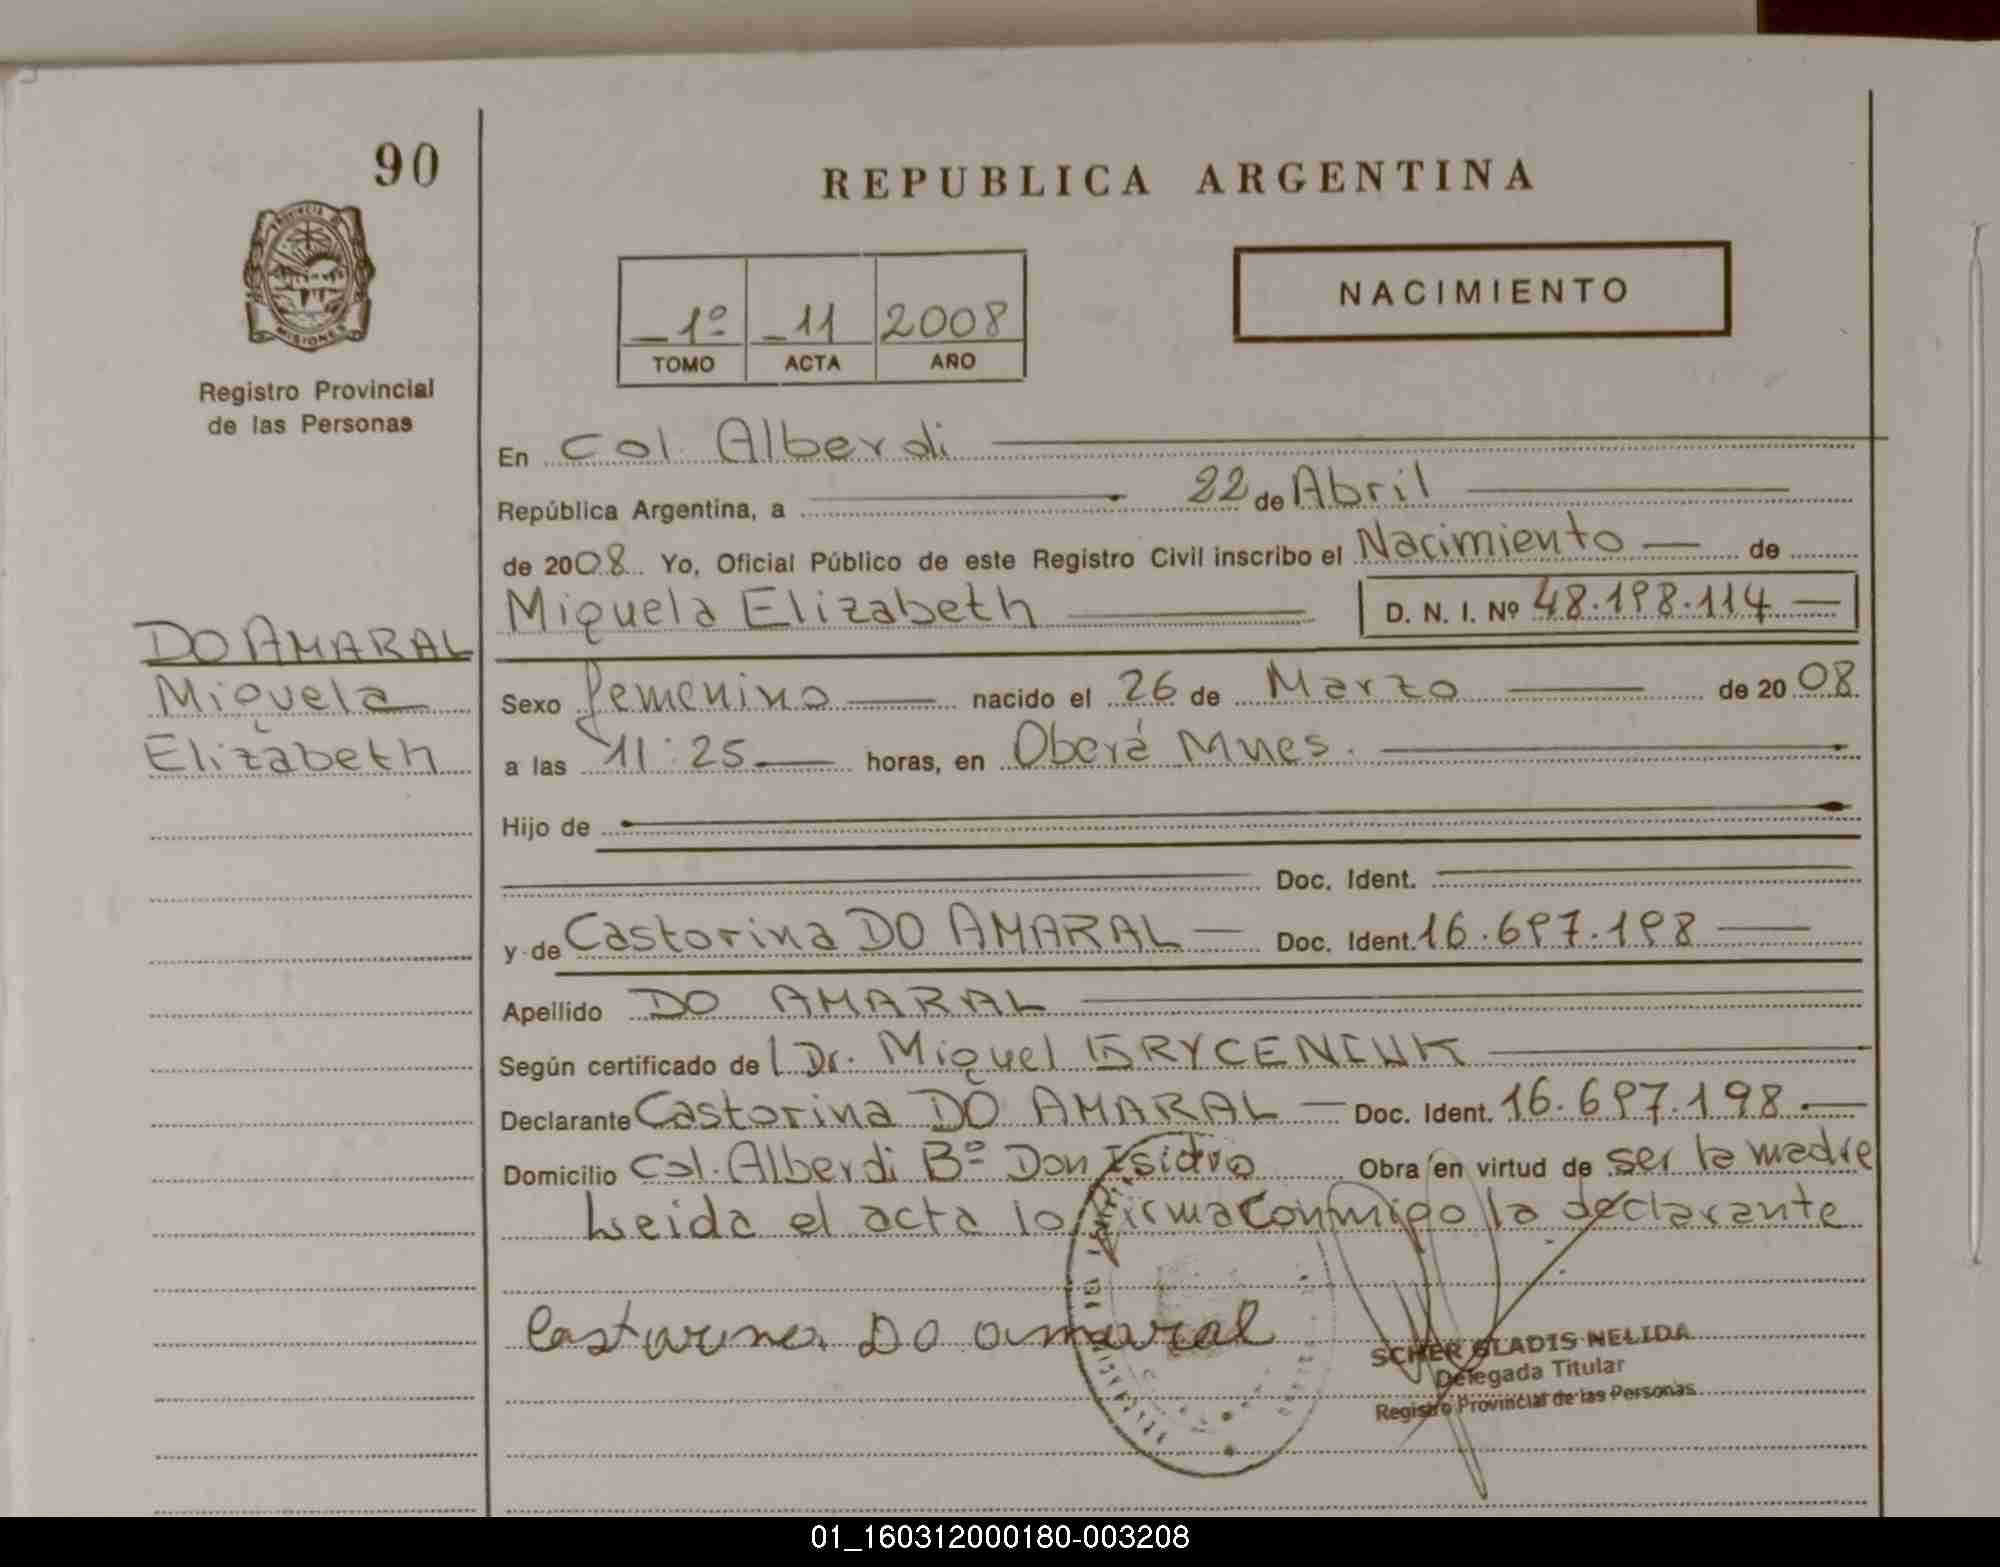 90
REPUBLICA ARGENTINA
PROVINCIA DE
MISIONES
Registro Provincial
de las Personas
1º 11 2008
TOMO ACTA AÑO
NACIMIENTO
En Col. Alberdi
República Argentina, a 22 de Abril
de 2008. Yo, Oficial Público de este Registro Civil inscribo el Nacimiento de
Miquela Elizabeth D. N. I. Nº 48.198.114
DO AMARAL
Miquela
Elizabeth
Sexo femenino nacido el 26 de Marzo de 2008.
a las 11:25 horas, en Oberá Mnes.
Hijo de
Doc. Ident.
y de Castorina DO AMARAL Doc. Ident. 16.697.198
Apellido DO AMARAL
Según certificado de l Dr. Miguel
Declarante Castorina DO AMARAL Doc. Ident. 16.697.198
Domicilio Col. Alberdi Bº Don Isidro Obra en virtud de ser la madre
Leida el acta lo firma conmigo la declarante
Castorina Do amaral
SCHER GLADIS NELIDA
Delegada Titular
Registro Provincial de las Personas
01_160312000180-003208